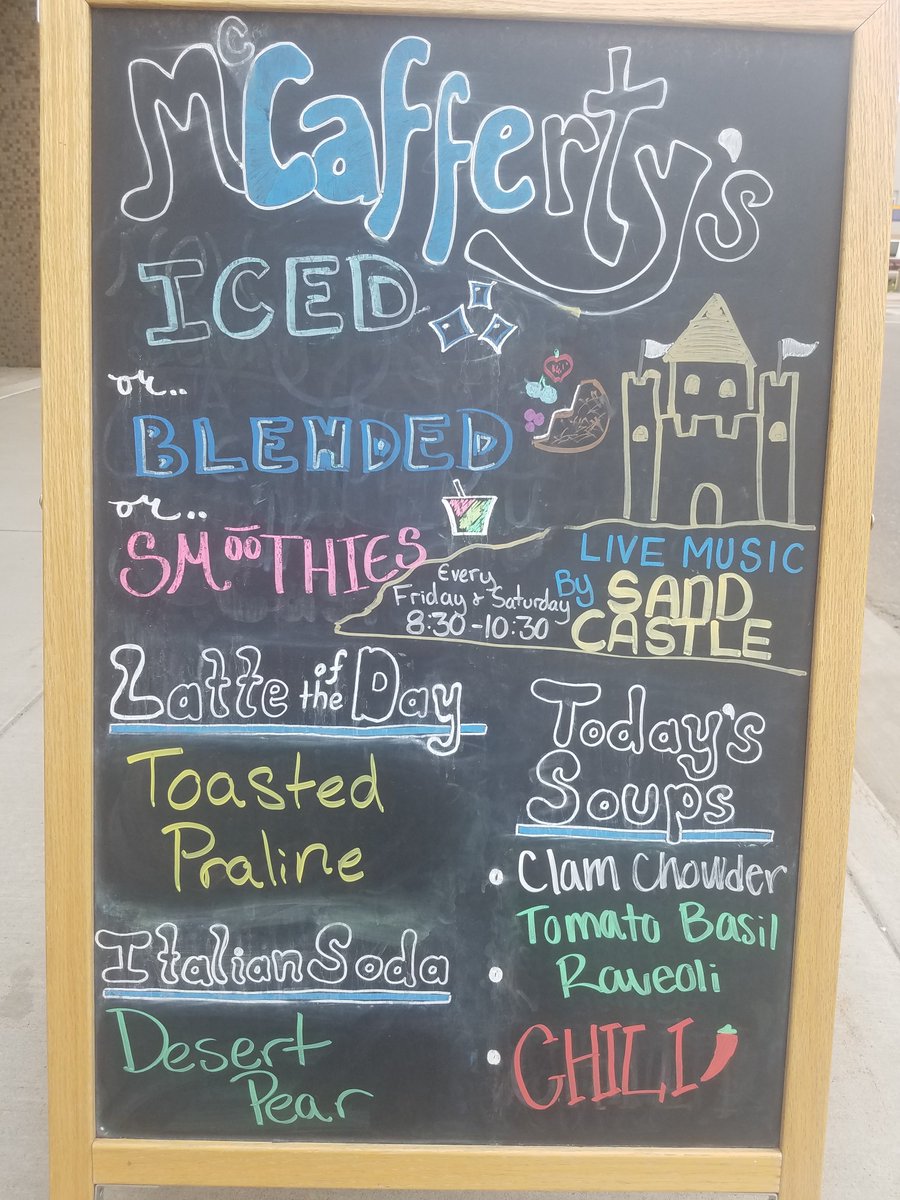 McCafferty's
ICED
or..
BLENDED
or..
SMOOTHIES
Every
Friday & Saturday
8:30-10:30
LIVE MUSIC
By SAND
CASTLE
Latte of the Day
Toasted
Praline
Italian Soda
Desert
Pear
Today's
Soups
• Clam Chowder
Tomato Basil
• Raveoli
• CHILI